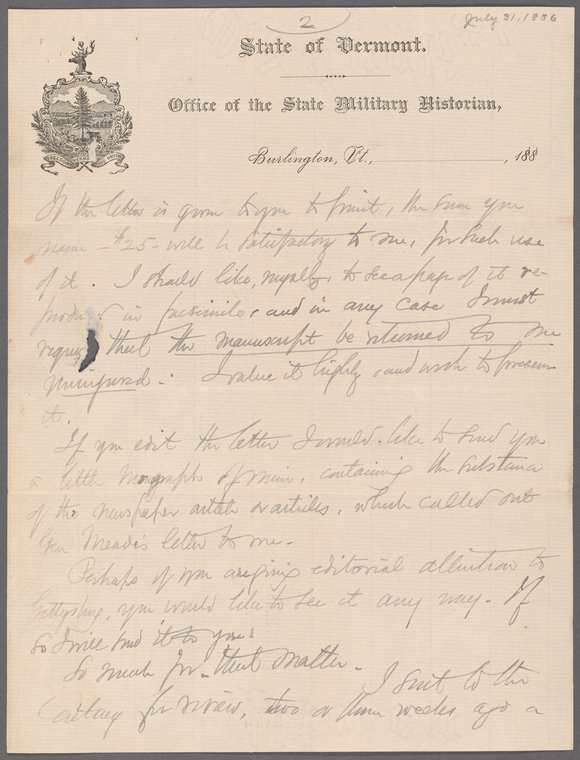 2
July 31, 1886
State of Vermont.
Office of the State Military Historian,
Burlington, Vt., 188
If the letter is given to you to print, the sum you
name - $25 - will be satisfactory to me, for such use
of it. I should like, myself, to see a page of it re-
produced in facsimile, and in any case I must
request that the manuscript be returned to me
uninjured. I value it highly and wish to preserve
it.
If you edit the letter I would like to send you
a little monograph of mine, containing the substance
of the newspaper article or articles, which called out
Gen Meade's letter to me.
Perhaps if you are giving editorial attention to
Gettysburg, you would like to see it any way. If
so I will send it to you.
So much for that matter.
I sent to the
Century for review, two or three weeks ago a